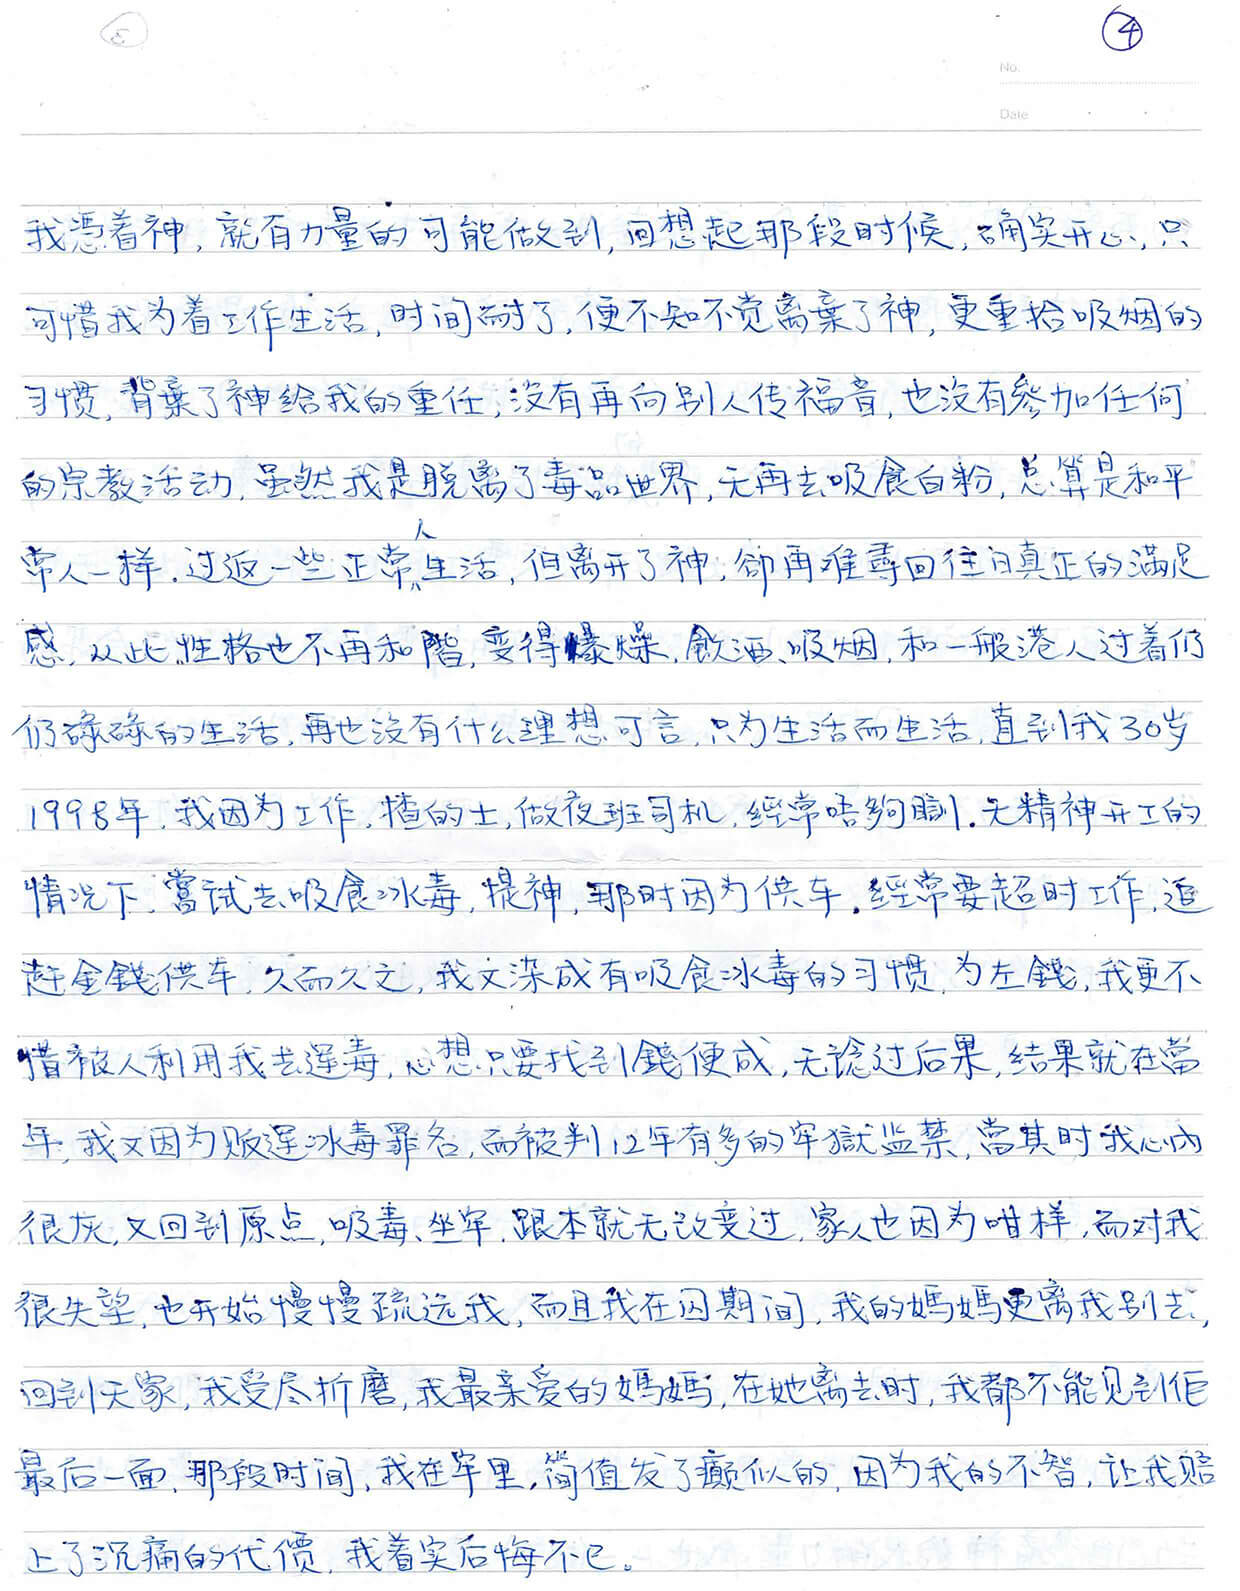 ④
No.
Date
我憑着神, 就有力量的可能做到, 回想起那段时候, 確实开心, 只
可惜我为着工作生活, 时间耐了, 便不知不觉离棄了神, 更重拾吸烟的
习惯, 背棄了神給我的重任, 沒有再向别人传福音, 也沒有參加任何
的宗教活动, 虽然我是脱离了毒品世界, 无再去吸食白粉, 总算是和平
常人一样, 过返一些正常人生活, 但离开了神, 卻再难尋回往日真正的满足
感, 从此性格也不再和階, 变得爆燥, 飲酒、吸烟, 和一般港人过着仍
仍碌碌的生活, 再也沒有什么理想可言, 只为生活而生活, 直到我30岁
1998年, 我因为工作, 揸的士, 做夜班司机, 經常唔夠瞓. 无精神开工的
情况下, 嘗試去吸食冰毒, 提神, 那时因为供车. 經常要超时工作, 追
赶金錢供车, 久而久之, 我又染成有吸食冰毒的习惯, 为左錢, 我更不
惜被人利用我去運毒, 心想只要找到錢便成, 无谂过后果, 结果就在當
年, 我又因为贩運冰毒罪名, 而被判12年有多的牢獄监禁, 當其时我心内
很灰, 又回到原点, 吸毒、坐牢, 跟本就无改变过, 家人也因为咁样, 而对我
很失望, 也开始慢慢疏远我, 而且我在囚期间, 我的媽媽更离我别去,
回到天家, 我受尽折磨, 我最亲爱的媽媽, 在她离去时, 我都不能见到佢
最后一面, 那段时间, 我在牢里, 简值发了癲似的, 因为我的不智, 让我赔
上了沉痛的代價, 我着实后悔不已。